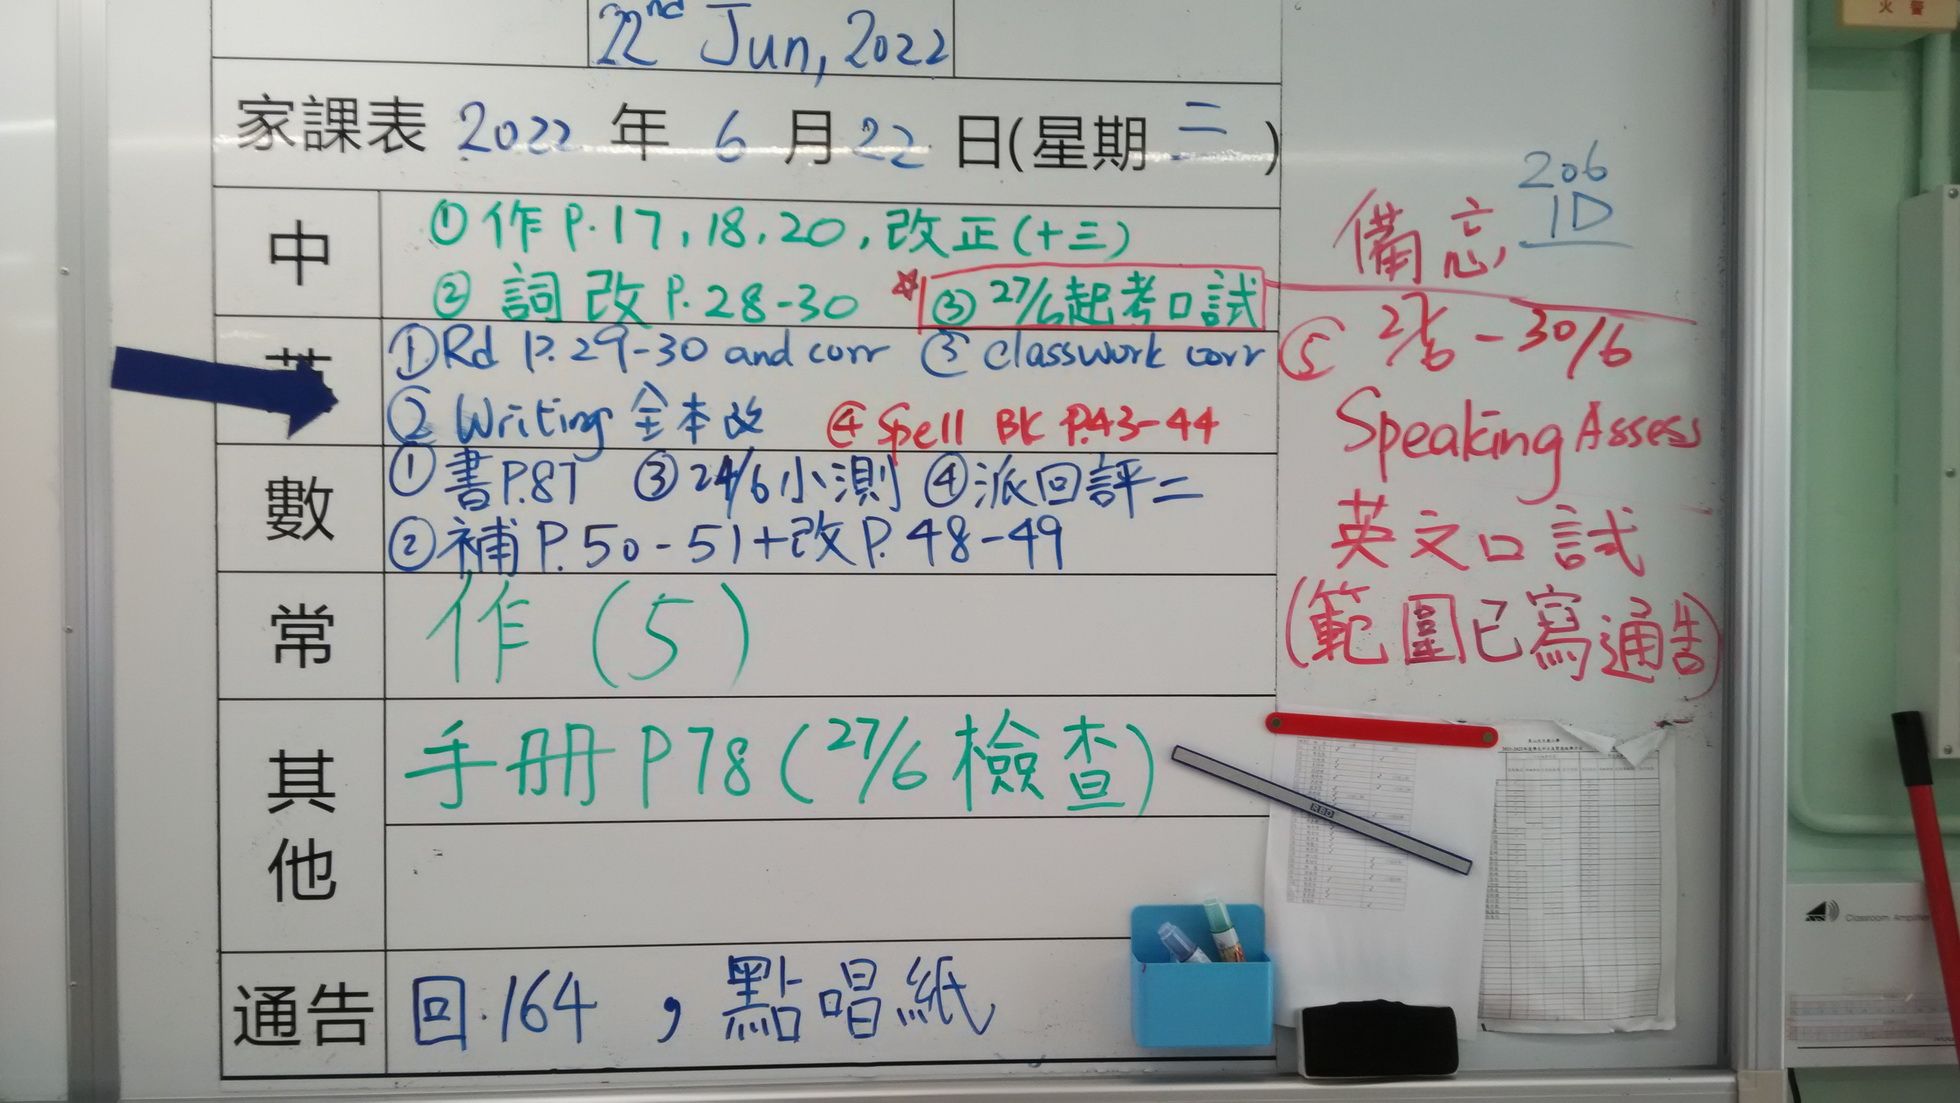 22nd Jun, 2022
家課表 2022 年 6 月 22 日(星期 二 )
中
①作 P.17, 18, 20, 改正(十三)
② 詞 改 P.28-30 ③ 27/6起考口試
英
①Rd P.29-30 and corr ③ classwork corr
② Writing 全本改 ④ Spell BK P.43-44
數
①書P.87 ③24/6小測 ④派回評二
②補P.50-51+改P.48-49
常
作 (5)
其他
手冊 P78 (27/6 檢查)
通告
回.164 , 點唱紙
206
1D
備忘
⑤ 27/6 - 30/6
Speaking Assess
英文口試
(範圍已寫通告)
火 警
Classroom Amplifier